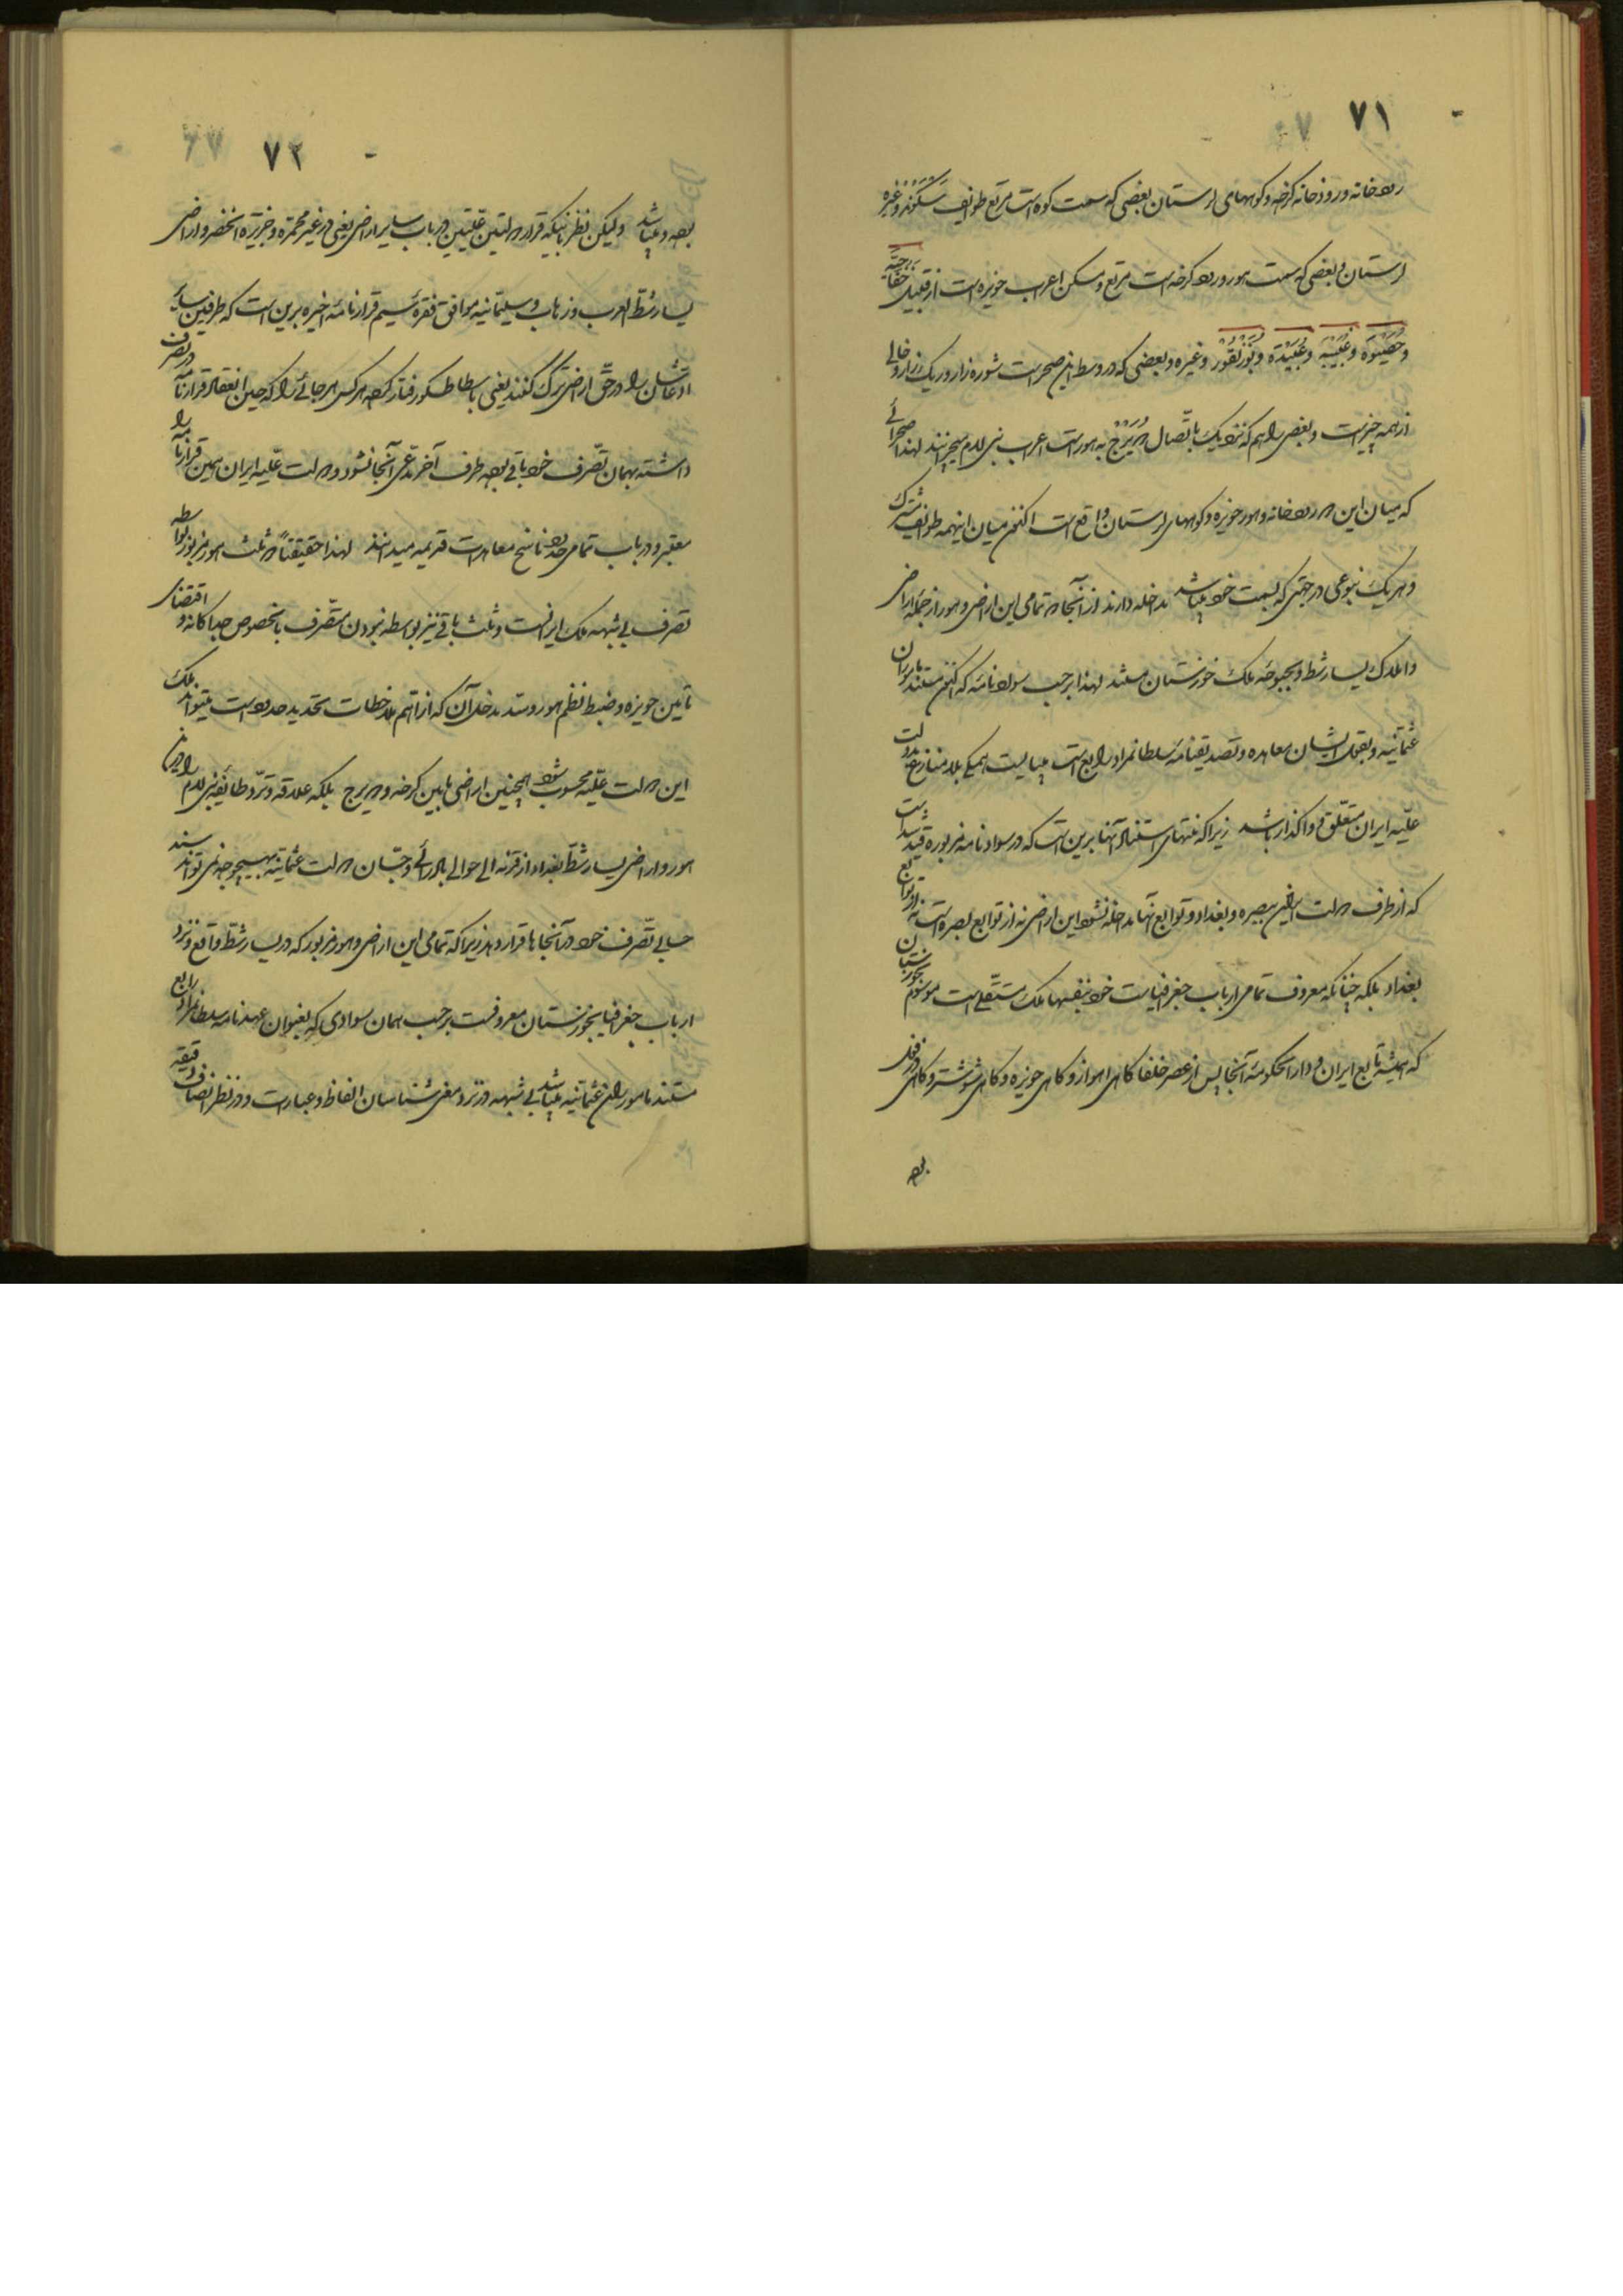 ۷۱
رودخانه و رودخانه کرخه و کوههای لرستان بعضی که سمت کوه است مرتع طوایف سگوند و غیره
لرستان و بعضی که سمت هور و رود کرخه است مرتع و مسکن اعراب حویزه است از قبیل
و غیره و بعضی که در وسط این صحراست شوره زار و ریک زار و خالی
از همه چیز است و بعضی را هم که نزدیک باتصال دویرج به هور است اعراب بنی لام میچرانند لهذا صحرائی
که میان این دو رودخانه و هور حویزه و کوههای لرستان واقع است اکنون میان اینهمه طوایف مشترک
و هر یک بنوعی در جهتی که بسمت خود میباشد مداخله دارند و از آنجا که تمامی این اراضی و هور از جمله اراضی
و املاک یسار شط و بحبوحه ملک خوزستان هستند لهذا برحسب سواد نامه که اکنون مستند مأموران
عثمانیه و بقول ایشان معاهده و تصدیقنامه سلطانمراد رابع است میبایست همگی بلا منازع بدولت
علیه ایران متعلق و واگذار باشد زیرا که منتهای استناد آنها برین است که در سواد نامه مزبوره قید شده است
که از طرف دولت ایران ببصره و بغداد و توابع آنها مداخله نشود این اراضی نه از توابع بصره است نه از توابع
بغداد بلکه چنانکه معروف تمامی ارباب جغرافیاست خود بنفسها ملک مستقلی است موسوم بخوزستان
که همیشه تابع ایران و دارالحکومه آنجا پس از عصر خلفا گاهی اهواز و گاهی حویزه و گاهی شوشتر و گاهی دزفول
بوده
۷۲
بوده و میباشد ولیکن نظر باینکه قرار دولتین علیتین در باب سایر اراضی یعنی در غیر محمره و جزیرة الخضر و اراضی
یسار شط العرب و زهاب و سلیمانیه موافق فقره سیم قرارنامه اخیره برین است که طرفین سایر
ادعاشان را در حق اراضی ترک کنند یعنی باسطاطسکو رفتار کرده هر کس هر جائی را که حین انعقاد قرارنامه در تصرف
داشته بهمان تصرف خود باقی بوده طرف آخر مدعی آنجا نشود و دولت علیه ایران همین قرارنامه را
معتبر و در باب تمامی حدود ناسخ معاهدات قدیمه میدانند لهذا حقیقتاً دو ثلث هور مزبور بواسطه
تصرف بی شبهه ملک ایرانست و ثلث باقی نیز بواسطه نبودن متصرف بالخصوص جداگانه و اقتضای
تأمین حویزه و ضبط و نظم هور و سد مداخل آن که از اهم ملاحظات تحدید حدود است میتواند ملک
این دولت علیه محسوب شود همچنین اراضی مابین کرخه و دویرج بلکه علاقه و تردد طائفه بنی لام را در این
هور و اراضی یسار شط بغداد از قرنه الی حوالی بادرائی و جسان دولت عثمانیه بهیچوجه نمی تواند سند
حسابی تصرف خود در آنجاها قرار دهد زیرا که تمامی این اراضی و هور مزبور که در یسار شط واقع و نزد
ارباب جغرافیا بخوزستان معروفست برحسب همان سوادی که بعنوان عهدنامه سلطانمراد رابع
مستند مأموران عثمانیه میباشد بی شبهه در نزد معنی شناسان الفاظ و عبارات و در نظر انصاف دقیقه